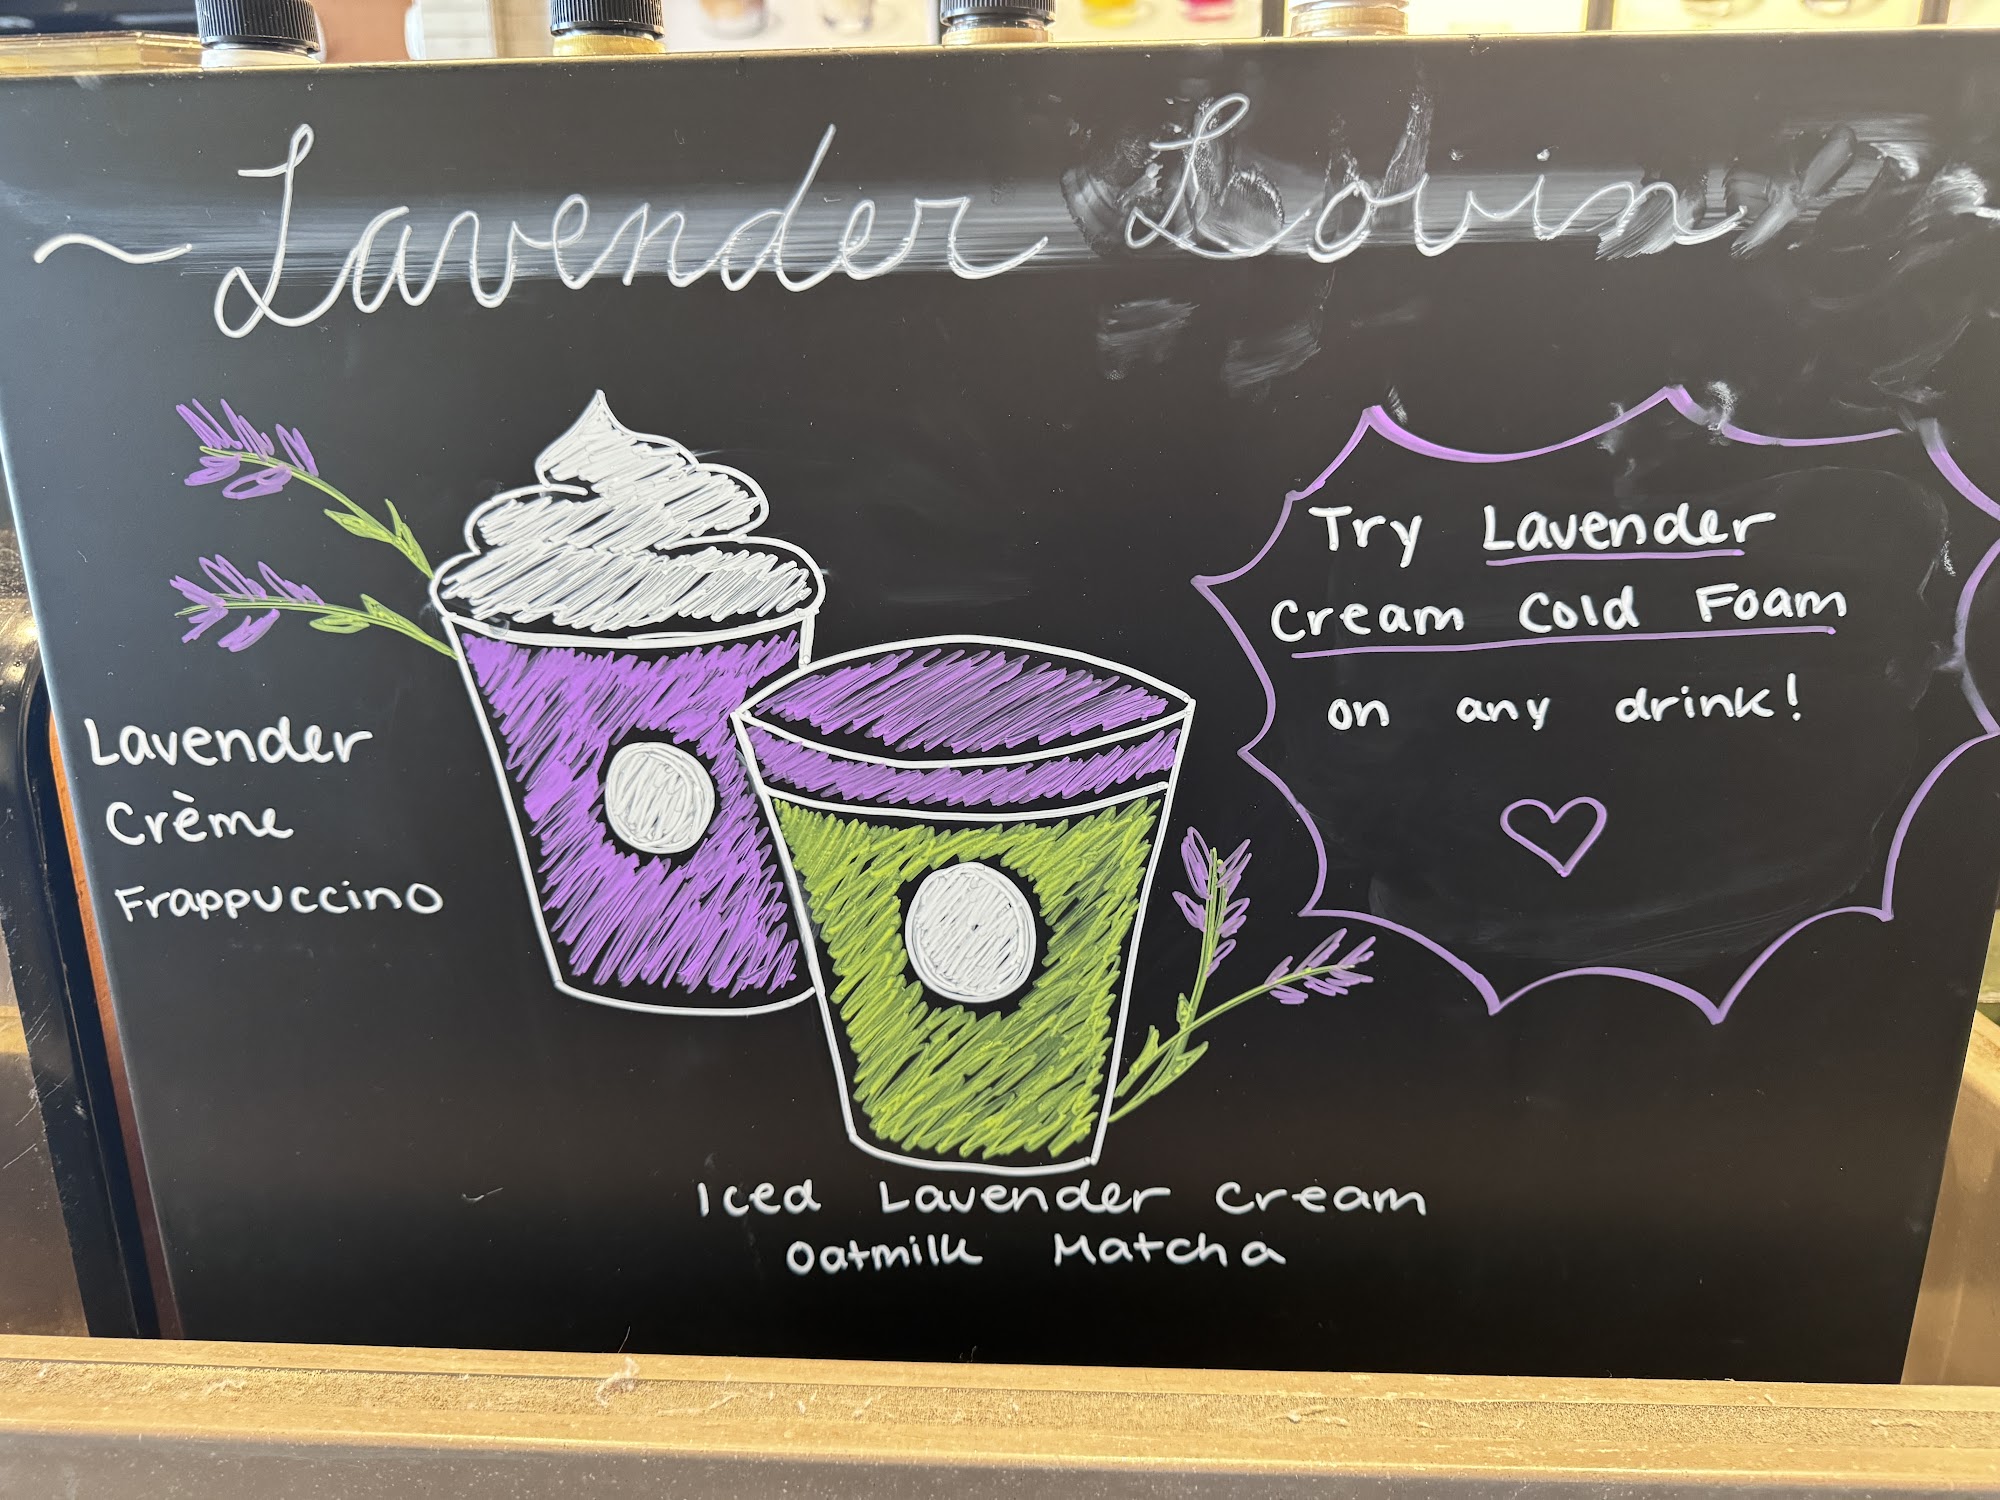 ~ Lavender Lovin ~
Lavender
Crème
Frappuccino
Iced Lavender Cream
Oatmilk Matcha
Try Lavender
Cream Cold Foam
on any drink!